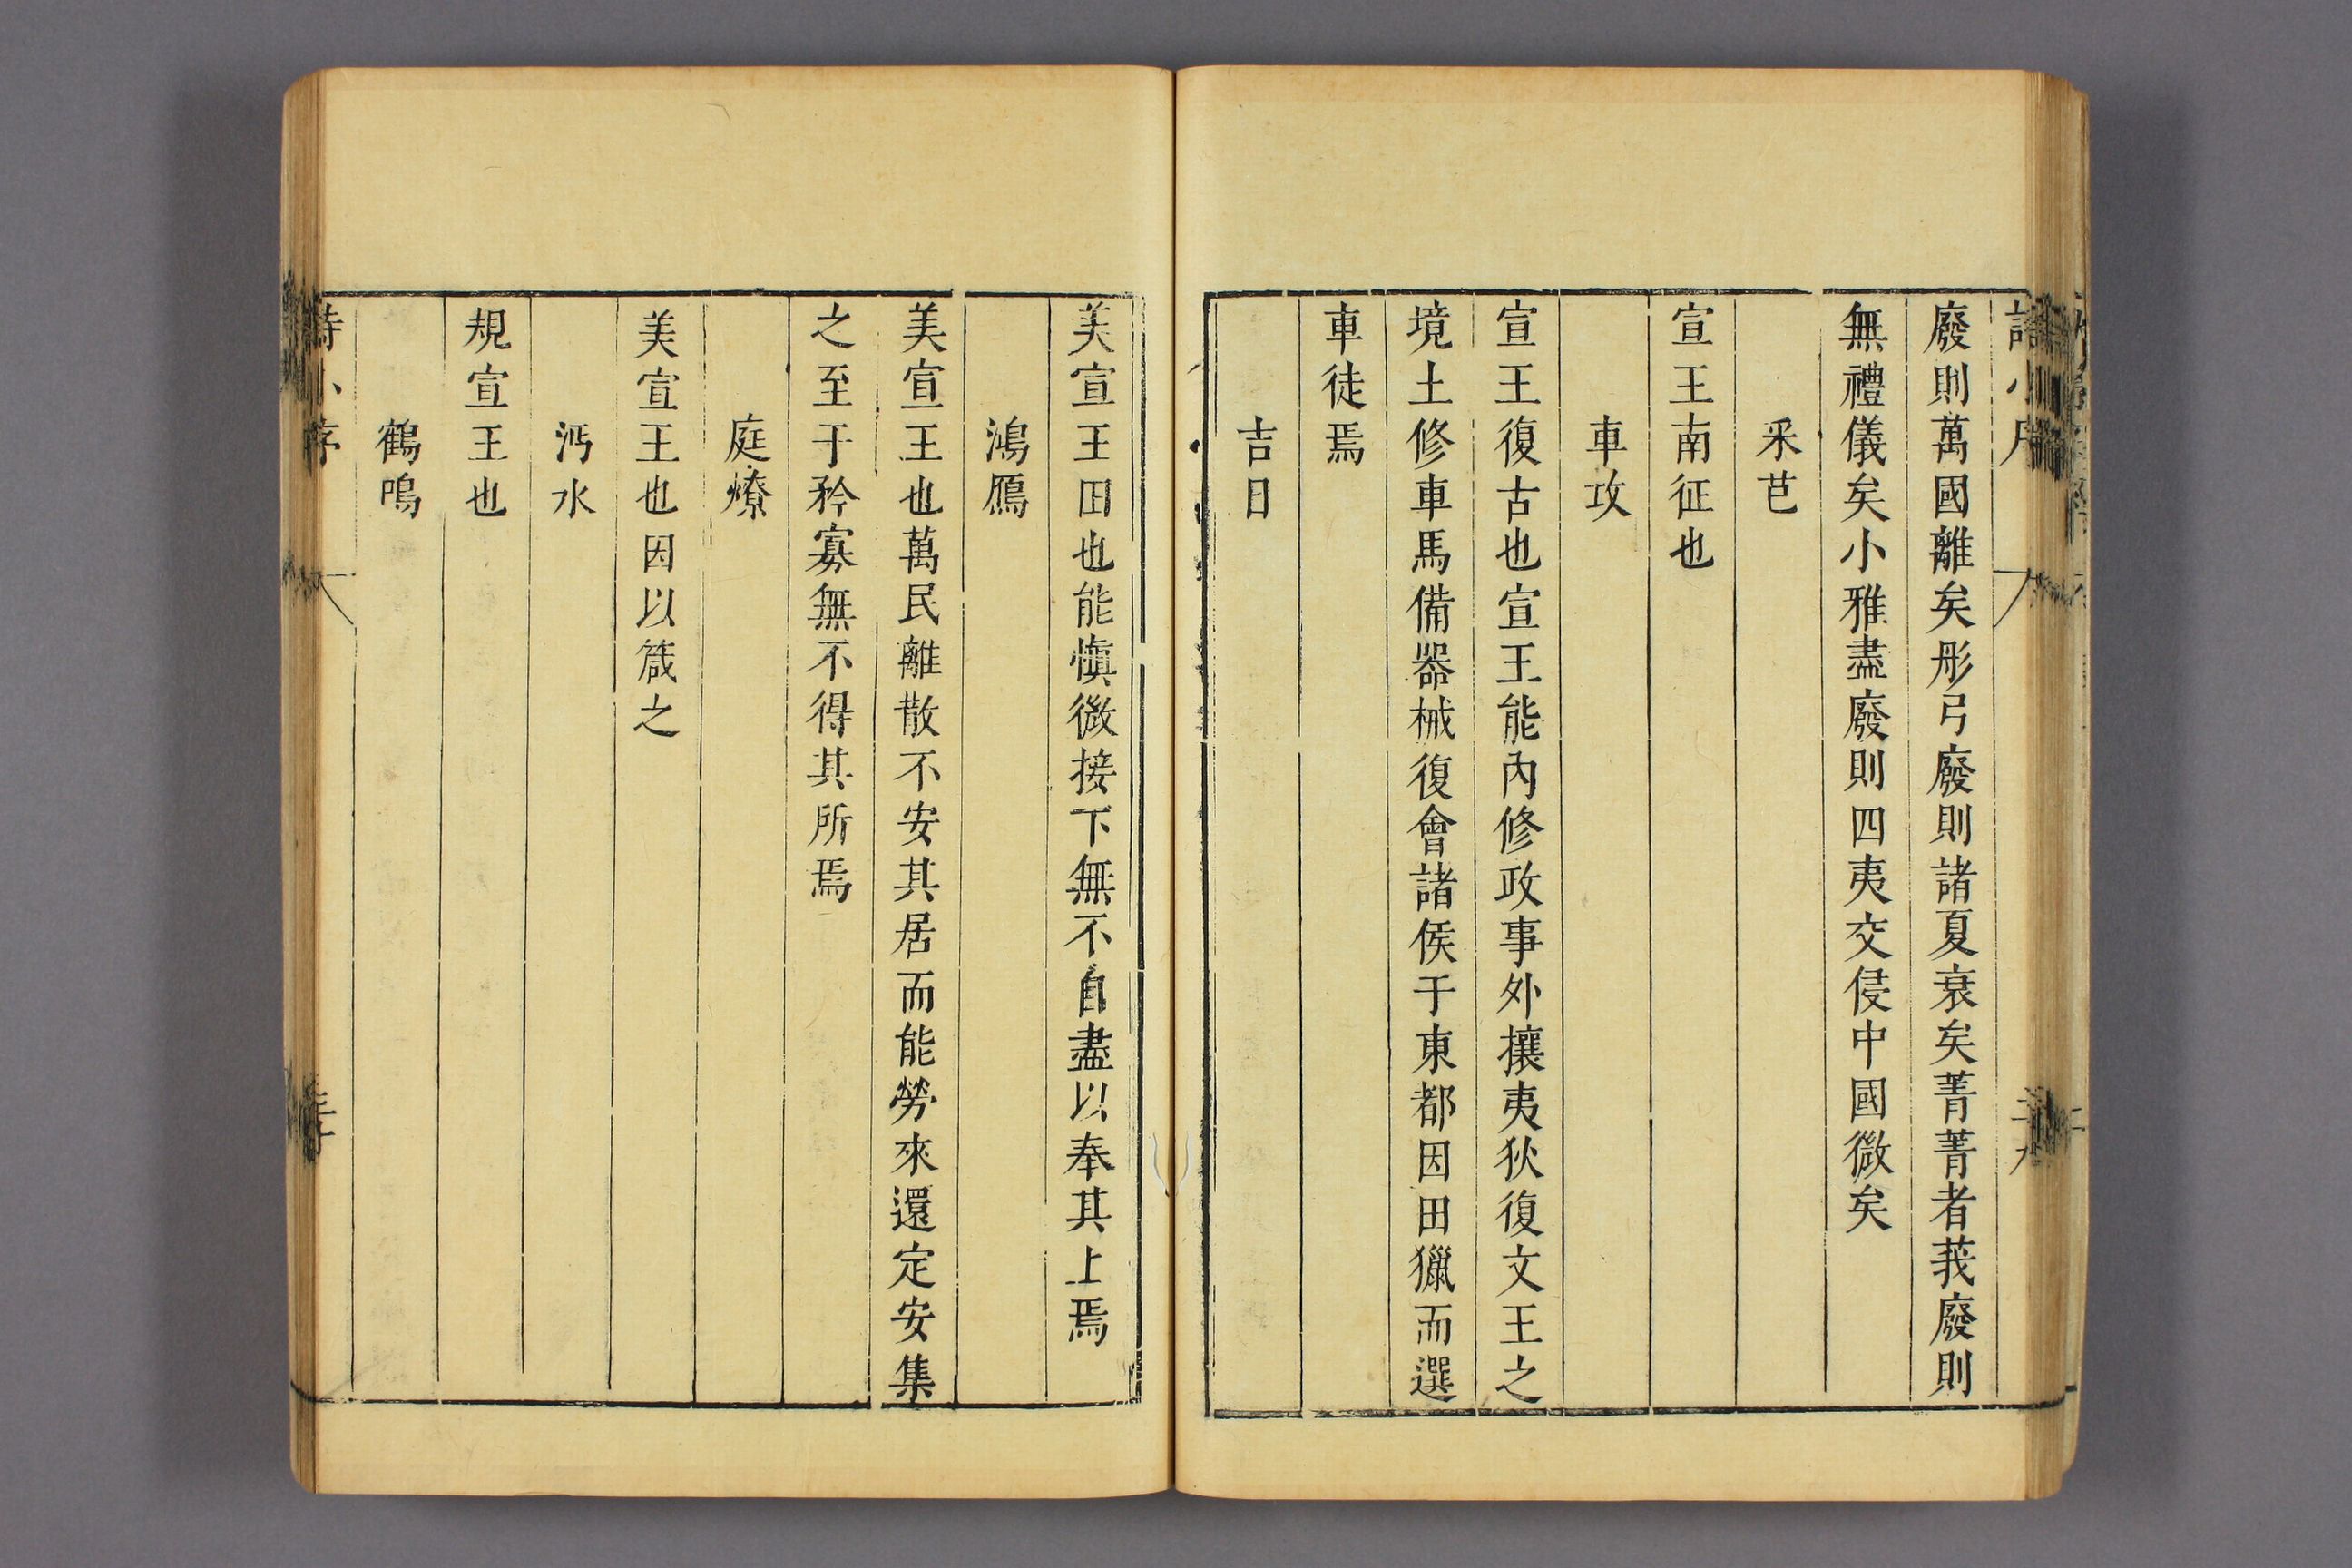 廢則萬國離矣彤弓廢則諸夏衰矣菁菁者莪廢則
無禮儀矣小雅盡廢則四夷交侵中國微矣
采芑
宣王南征也
車攻
宣王復古也宣王能內修政事外攘夷狄復文王之
境土修車馬備器械復會諸侯于東都因田獵而選
車徒焉
吉日
美宣王田也能慎微接下無不自盡以奉其上焉
鴻鴈
美宣王也萬民離散不安其居而能勞來還定安集
之至于矜寡無不得其所焉
庭燎
美宣王也因以箴之
沔水
規宣王也
鶴鳴
詩小序